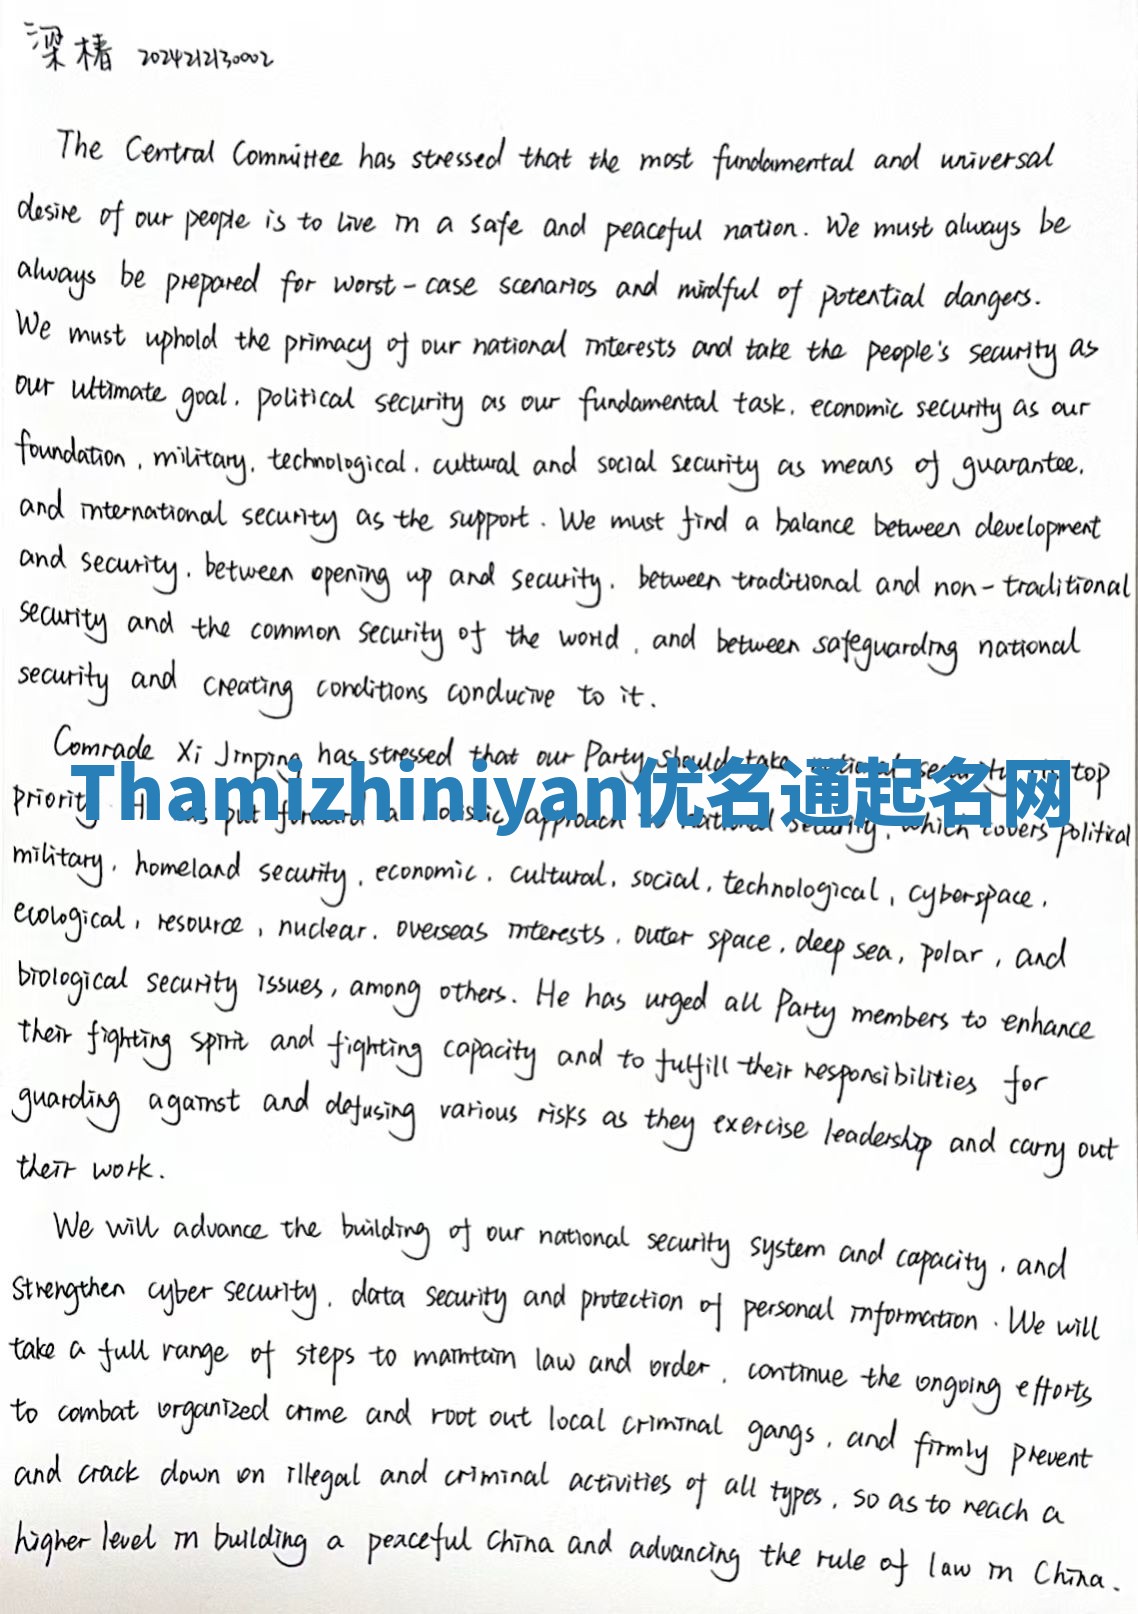 梁椿 2024212130002
The Central Committee has stressed that the most fundamental and universal
desire of our people is to live in a safe and peaceful nation. We must always be
always be prepared for worst-case scenarios and mindful of potential dangers.
We must uphold the primacy of our national interests and take the people's security as
our ultimate goal, political security as our fundamental task, economic security as our
foundation, military, technological, cultural and social security as means of guarantee,
and international security as the support. We must find a balance between development
and security, between opening up and security, between traditional and non-traditional
security and the common security of the world, and between safeguarding national
security and creating conditions conducive to it.
Comrade Xi Jinping has stressed that our Party should take national security top
Thamizhiniyan优名通起名网
priority put forward a holistic approach to national security, which covers political
military, homeland security, economic, cultural, social, technological, cyberspace,
ecological, resource, nuclear, overseas interests, outer space, deep sea, polar, and
biological security issues, among others. He has urged all Party members to enhance
their fighting spirit and fighting capacity and to fulfill their responsibilities for
guarding against and defusing various risks as they exercise leadership and carry out
their work.
We will advance the building of our national security system and capacity, and
strengthen cyber security, data security and protection of personal information. We will
take a full range of steps to maintain law and order, continue the ongoing efforts
to combat organized crime and root out local criminal gangs, and firmly prevent
and crack down on illegal and criminal activities of all types, so as to reach a
higher level in building a peaceful China and advancing the rule of law in China.